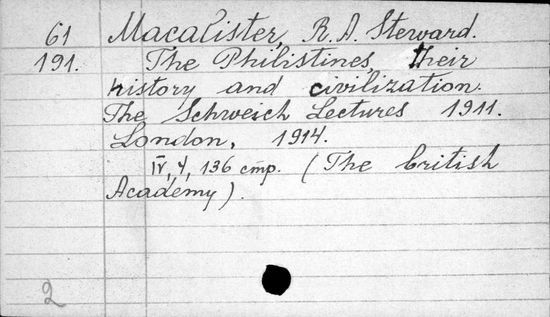 61 Macalister, R. A. Steward.
191. The Philistines, their
history and civilization.
The Schweich Lectures 1911.
London, 1914.
IV, 4, 136 cmp. (The british
Academy).
2